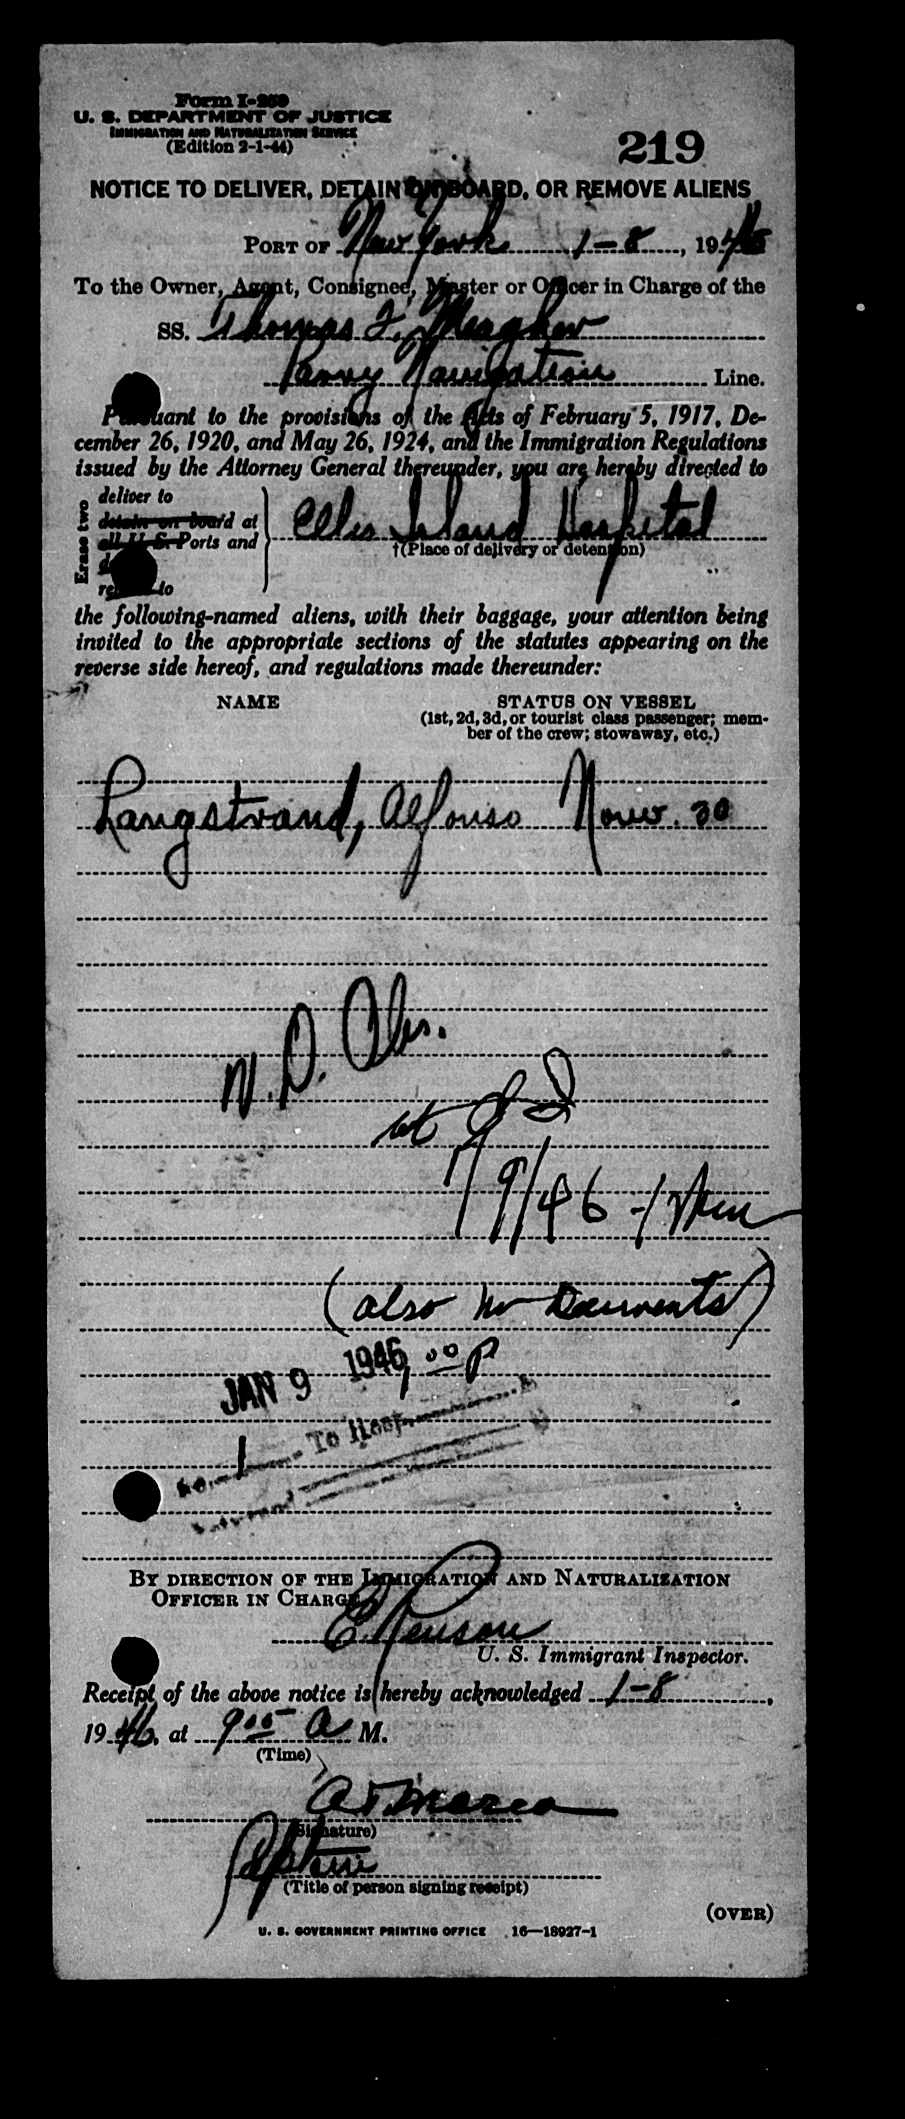 Form I-259
U. S. DEPARTMENT OF JUSTICE
IMMIGRATION AND NATURALIZATION SERVICE
(Edition 2-1-44)
219
NOTICE TO DELIVER, DETAIN ON BOARD, OR REMOVE ALIENS
PORT OF New York 1-8, 1946
To the Owner, Agent, Consignee, Master or Officer in Charge of the
SS. Thomas F. Meagher
Navigation Line.
Pursuant to the provisions of the Acts of February 5, 1917, De-
cember 26, 1920, and May 26, 1924, and the Immigration Regulations
issued by the Attorney General thereunder, you are hereby directed to
Erase two
deliver to
detain on board at
all U S. Ports and
remove to
Ellis Island Hospital
†(Place of delivery or detention)
the following-named aliens, with their baggage, your attention being
invited to the appropriate sections of the statutes appearing on the
reverse side hereof, and regulations made thereunder:
NAME STATUS ON VESSEL
(1st, 2d, 3d, or tourist class passenger; mem-
ber of the crew; stowaway, etc.)
Langstrand, Alfonso Norw. 30
N. D. Obs.
at
1/9/46 -
(also no Documents)
JAN 9 1946, 00 P
No. 1 To Hosp.
BY DIRECTION OF THE IMMIGRATION AND NATURALIZATION
OFFICER IN CHARGE
U. S. Immigrant Inspector.
Receipt of the above notice is hereby acknowledged 1-8,
1946, at 9 05 A M.
(Time)
(Signature)
(Title of person signing receipt)
(OVER)
U. S. GOVERNMENT PRINTING OFFICE 16—18927-1